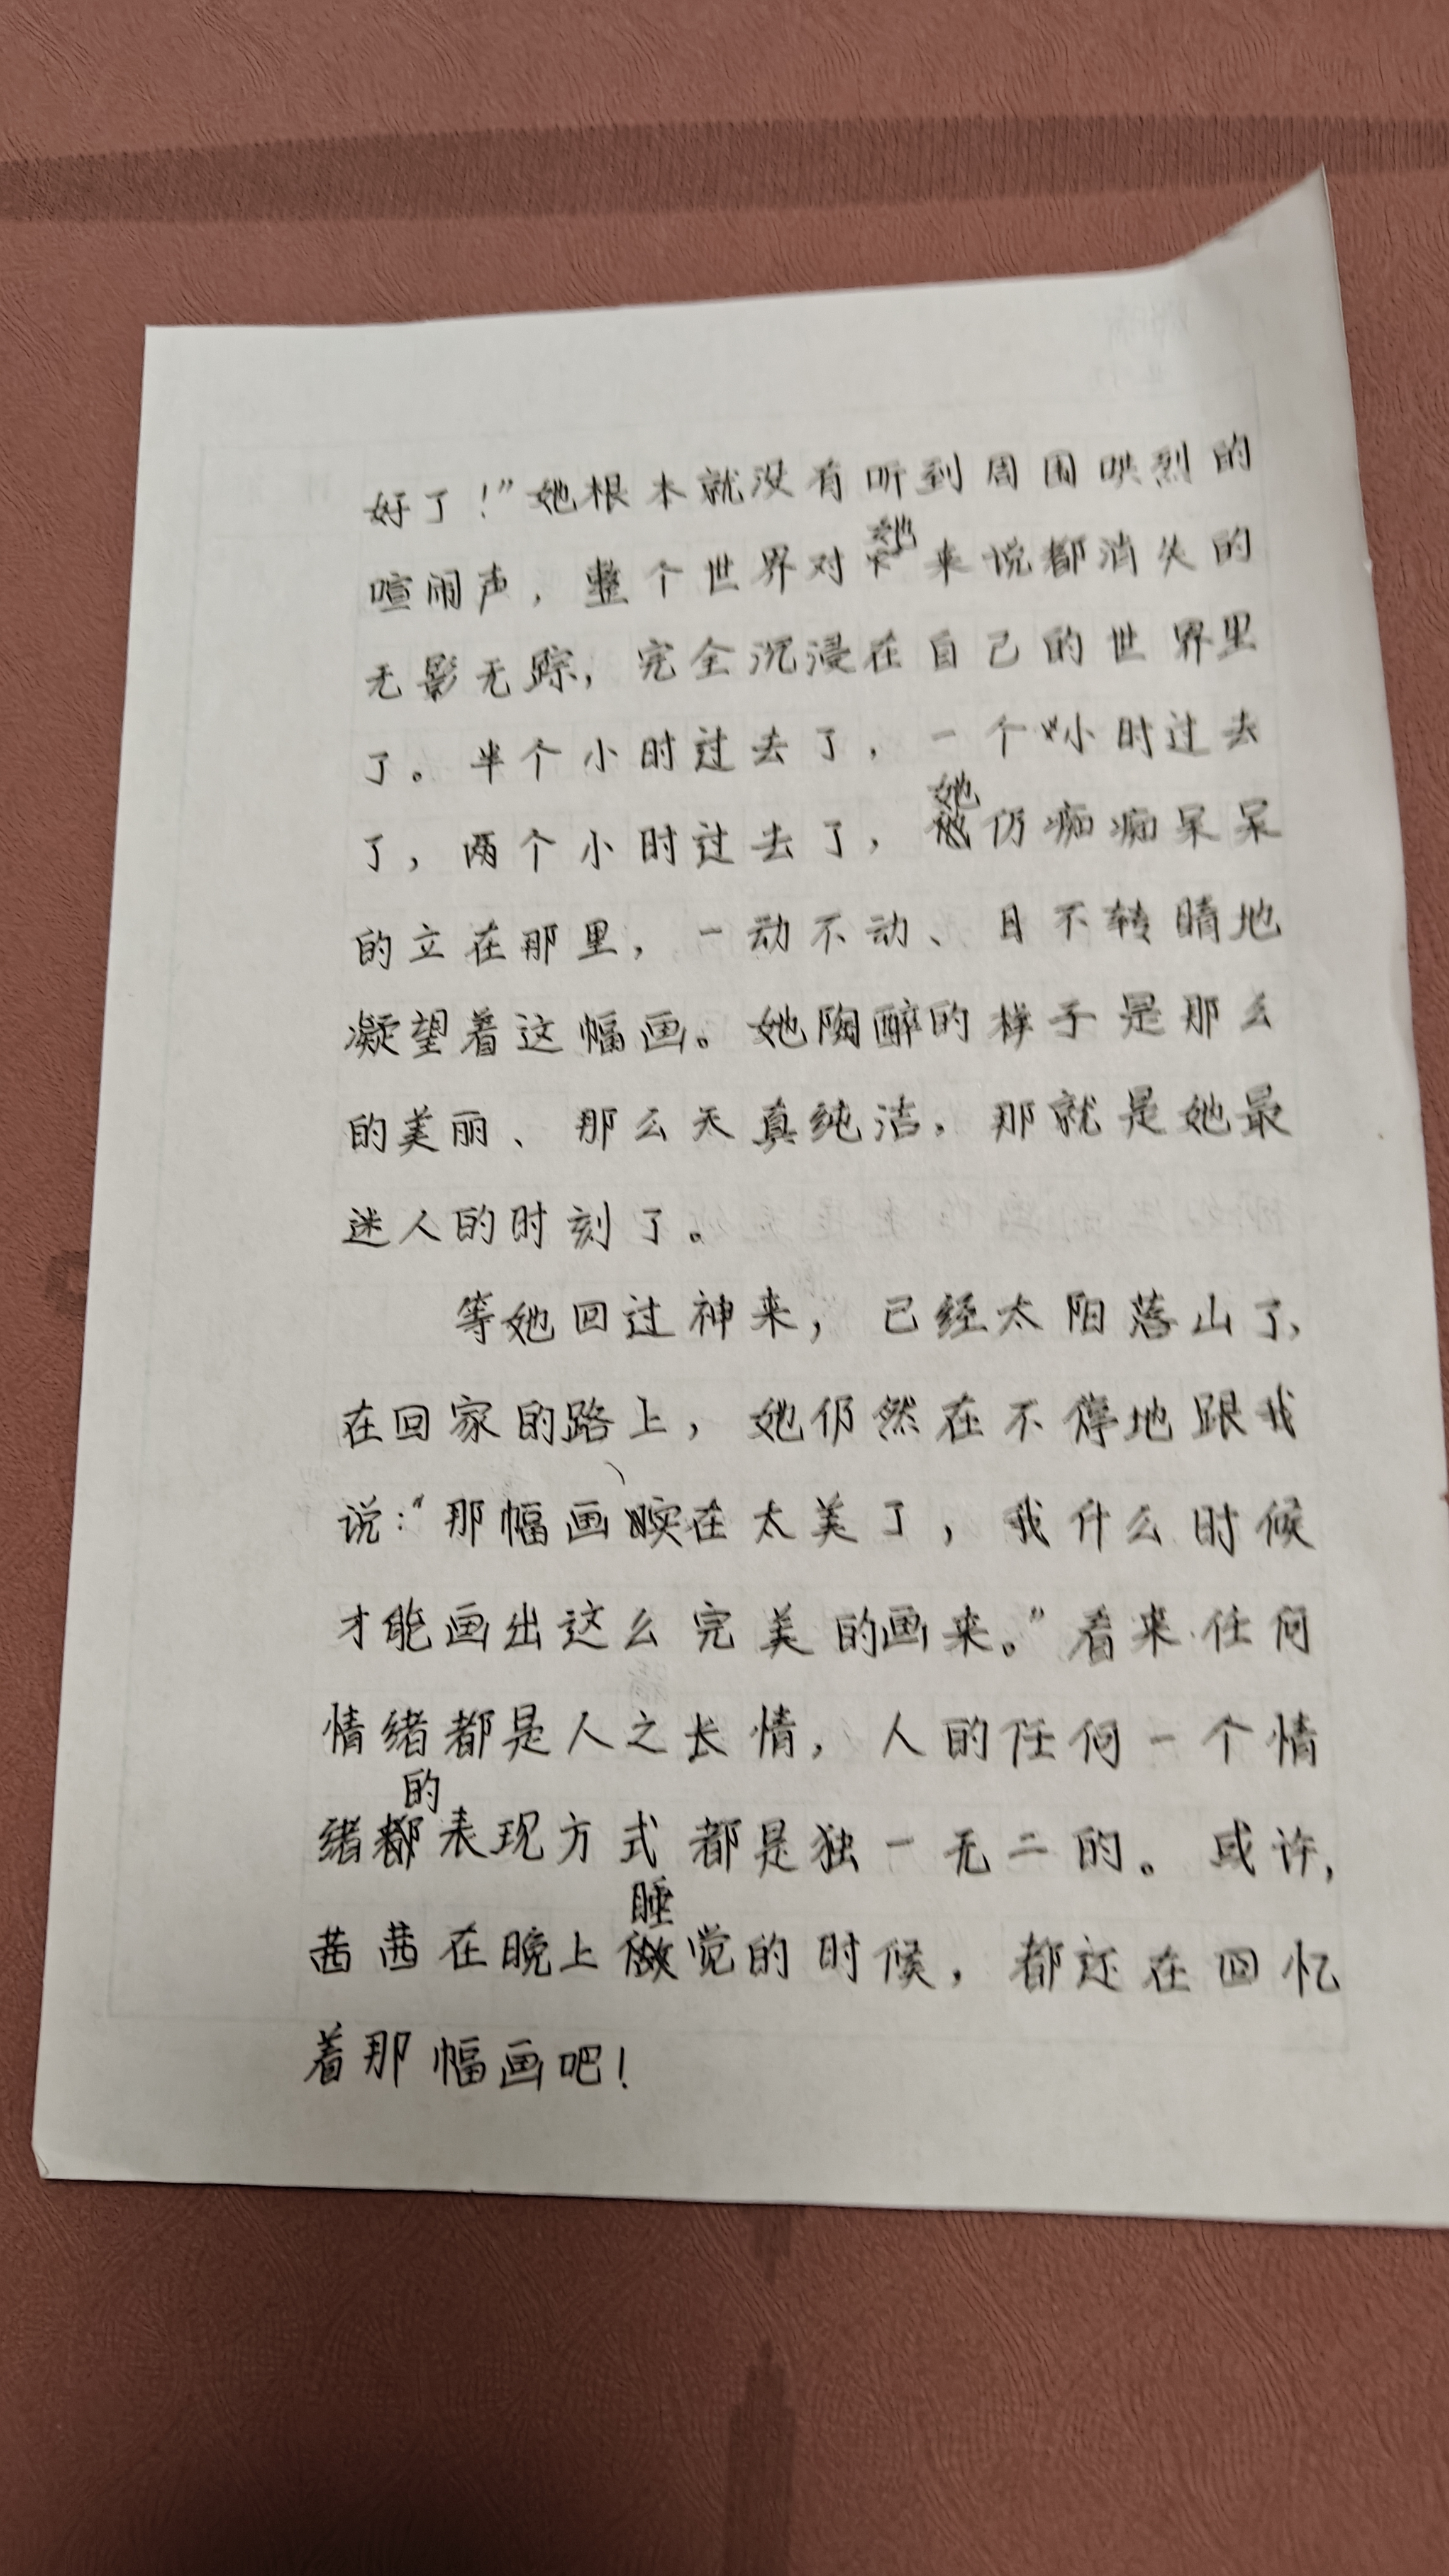 好了！”她根本就没有听到周围哄烈的
喧闹声，整个世界对她来说都消失的
无影无踪，完全沉浸在自己的世界里
了。半个小时过去了，一个小时过去
了，两个小时过去了，她仍痴痴呆呆
的立在那里，一动不动、目不转睛地
凝望着这幅画。她陶醉的样子是那么
的美丽、那么天真纯洁，那就是她最
迷人的时刻了。
等她回过神来，已经太阳落山了，
在回家的路上，她仍然在不停地跟我
说：“那幅画实在太美了，我什么时候
才能画出这么完美的画来。”看来任何
情绪都是人之长情，人的任何一个情
绪的表现方式都是独一无二的。或许，
茜茜在晚上睡觉的时候，都还在回忆
着那幅画吧！